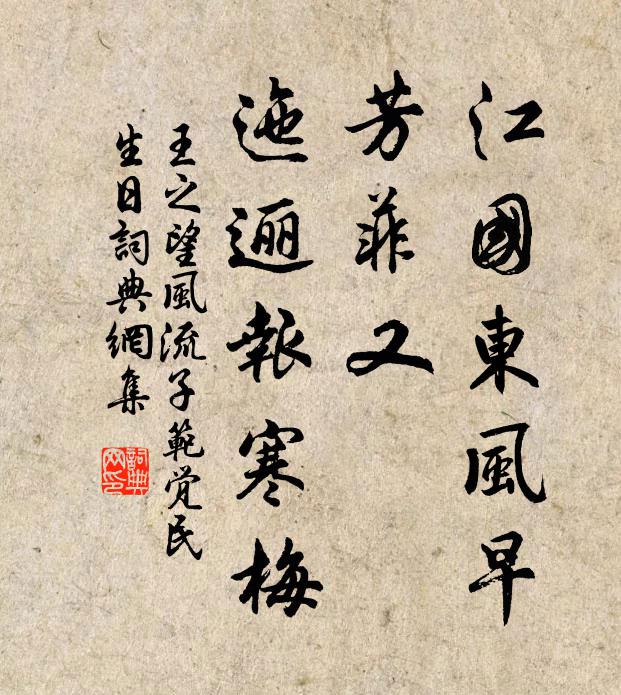 江國東風早
芳菲又
迤逦報寒梅
王之望風流子範觉民
生日詞典網集
詞典網印